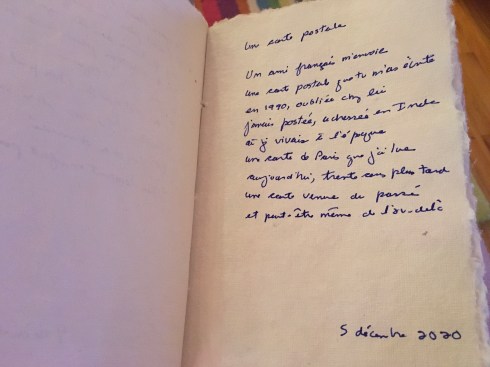 Un carte postale
Un ami français m'envoie
une carte postal que tu m'as écrite
en 1990, oubliée chez lui
jamais postée, adressée en Inde
où j'vivais à l'époque
une carte de Paris que j'ai lue
aujourd'hui, trente ans plus tard
une carte venue du passé
et peut-être même de l'au-delà
5 décembre 2020